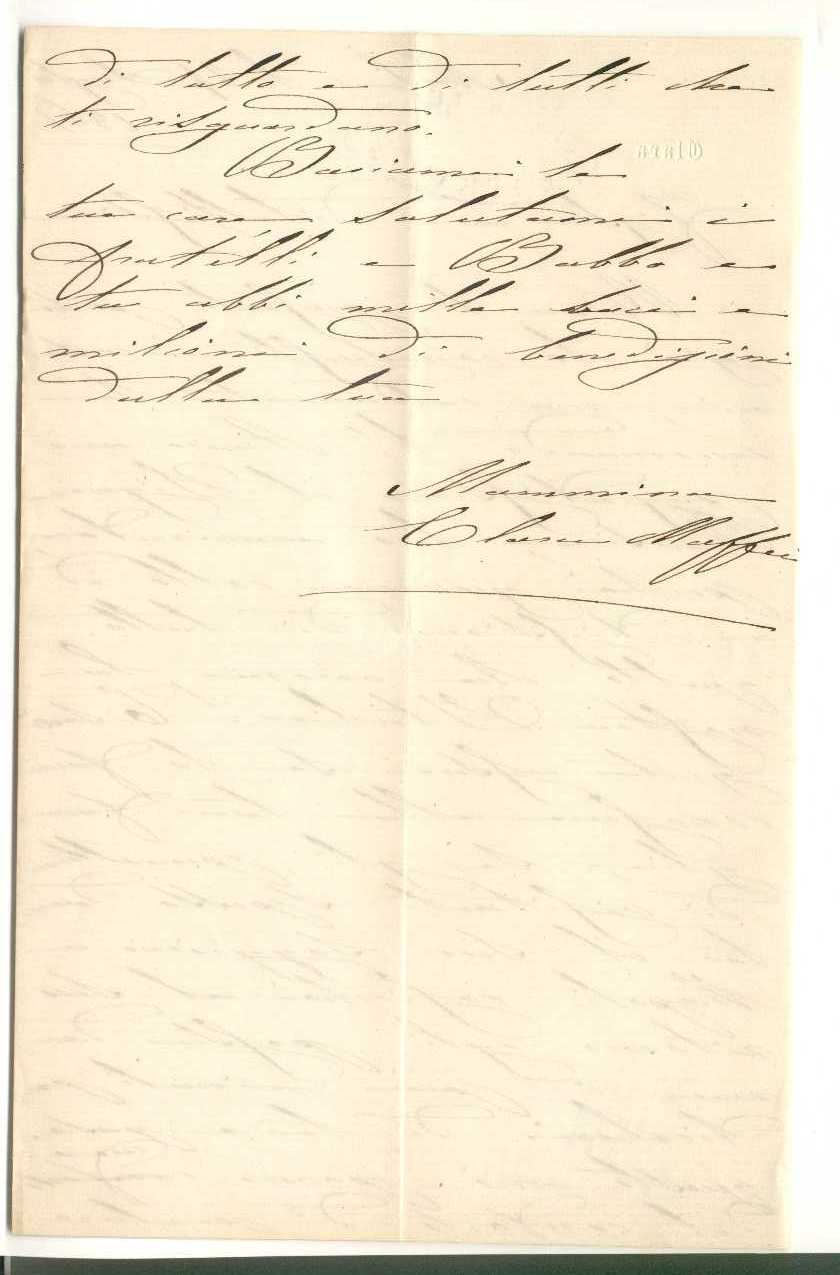 di tutto e di tutti che
ti risguardano.
Baciami le
tue care, salutami i
fratelli e Babbo e
tu abbi mille baci e
milioni di benedizioni
dalla tua
Mammina
Clara Maffei